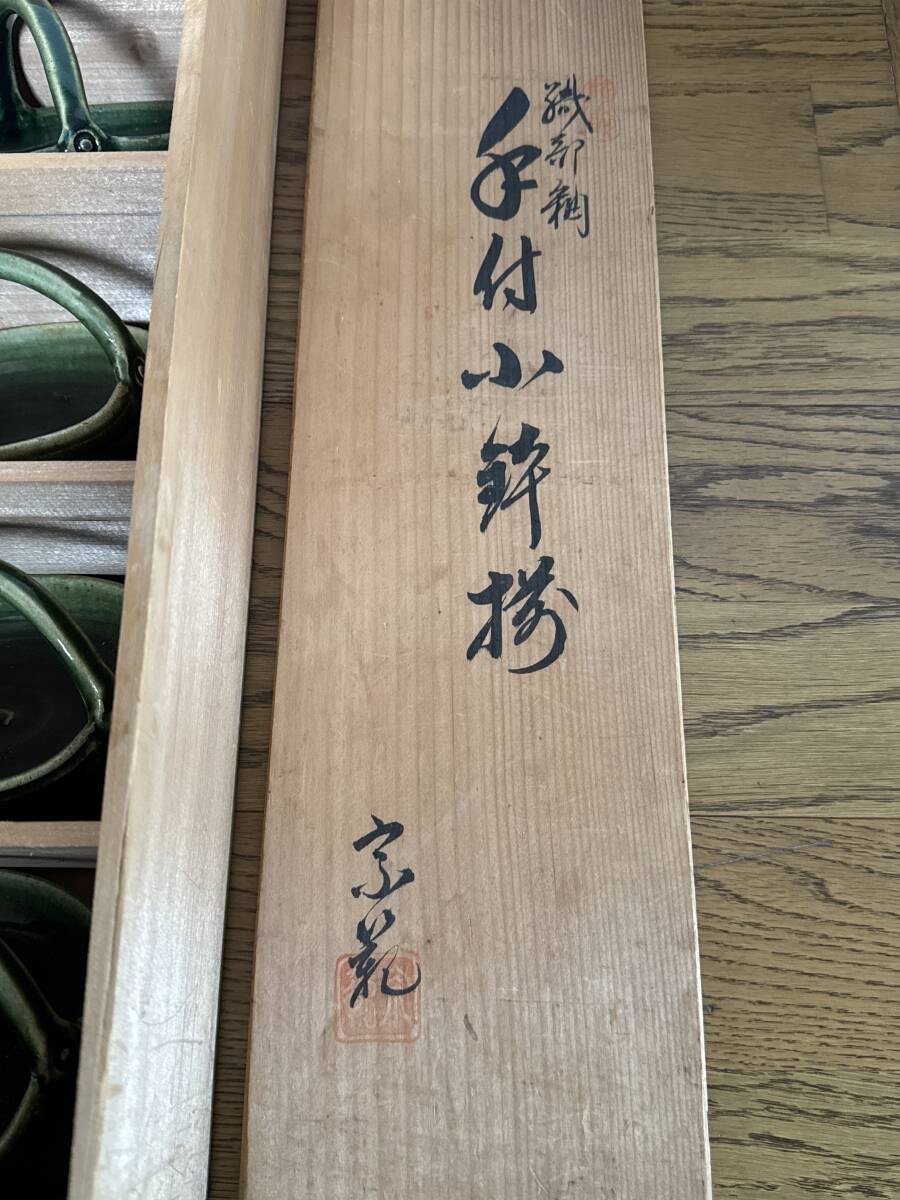 織部釉
手付小鉢揃
宗範